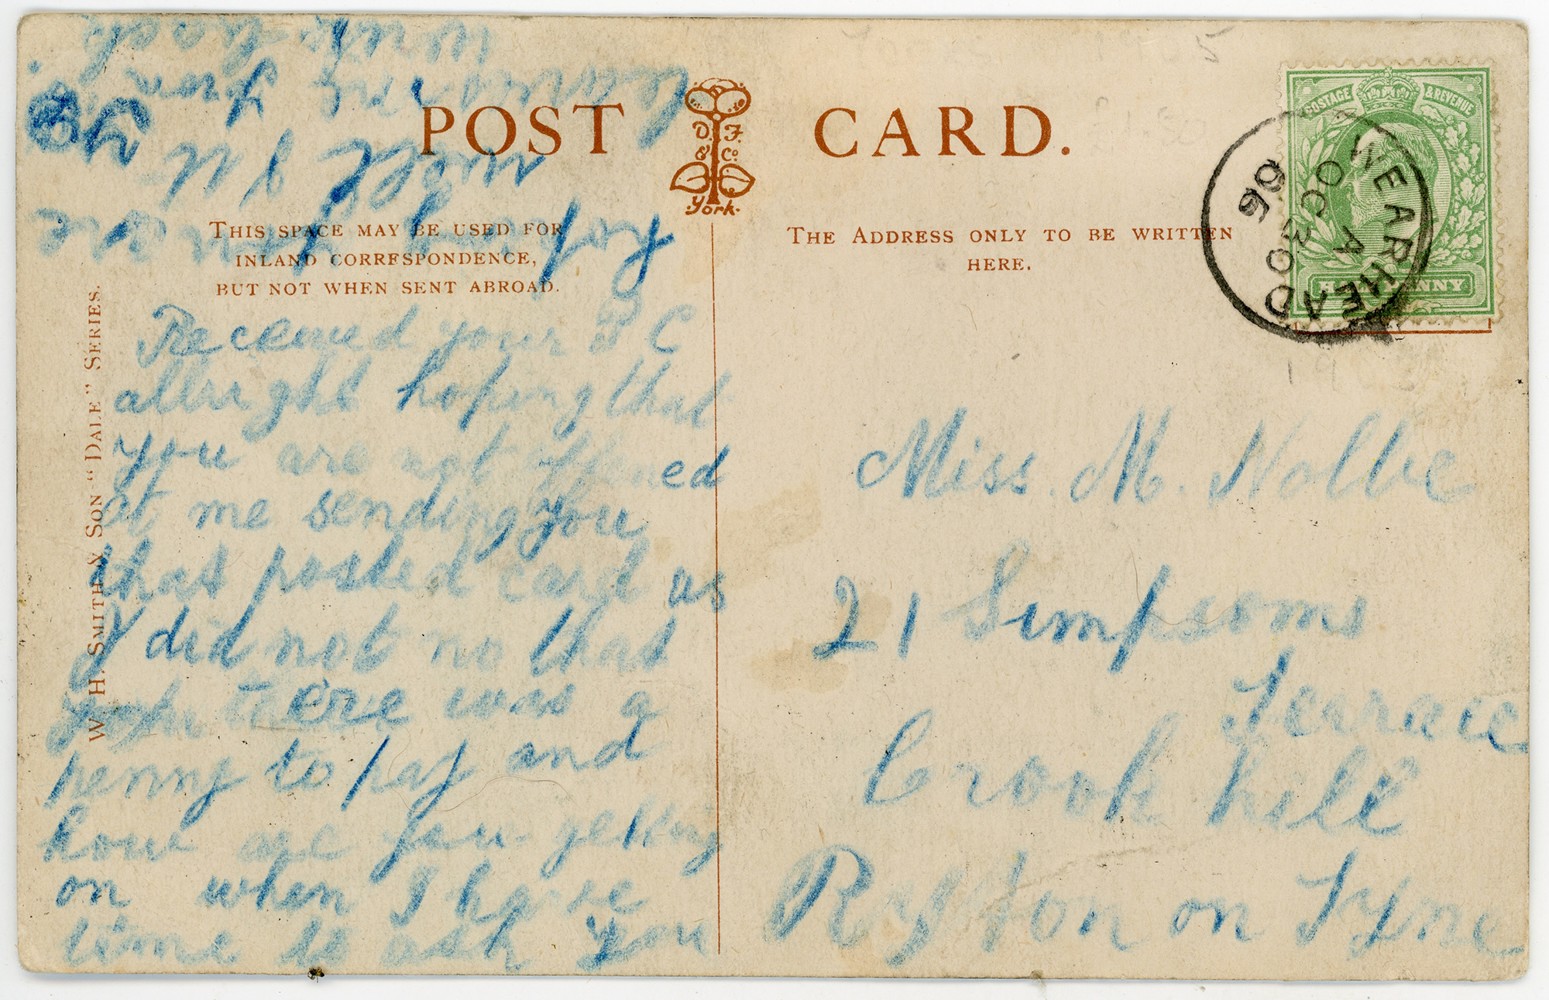 POST CARD.
D. F. & Co.
York.
THIS SPACE MAY BE USED FOR
INLAND CORRESPONDENCE,
BUT NOT WHEN SENT ABROAD.
THE ADDRESS ONLY TO BE WRITTEN
HERE.
W. H. SMITH & SON "DALE" SERIES.
POSTAGE & REVENUE
HALFPENNY
WEARHEAD
A
OC 30
06
Received your P C
allright hoping that
you are not offened
at me sending you
that posted card as
I did not no that
there was a
penny to pay and
how are you getting
on when I have
time to ask you
hoping you are
well
from
Miss. M. Noble
21 Simpsons
Terrace
Crook hill
Ryton on Tyne